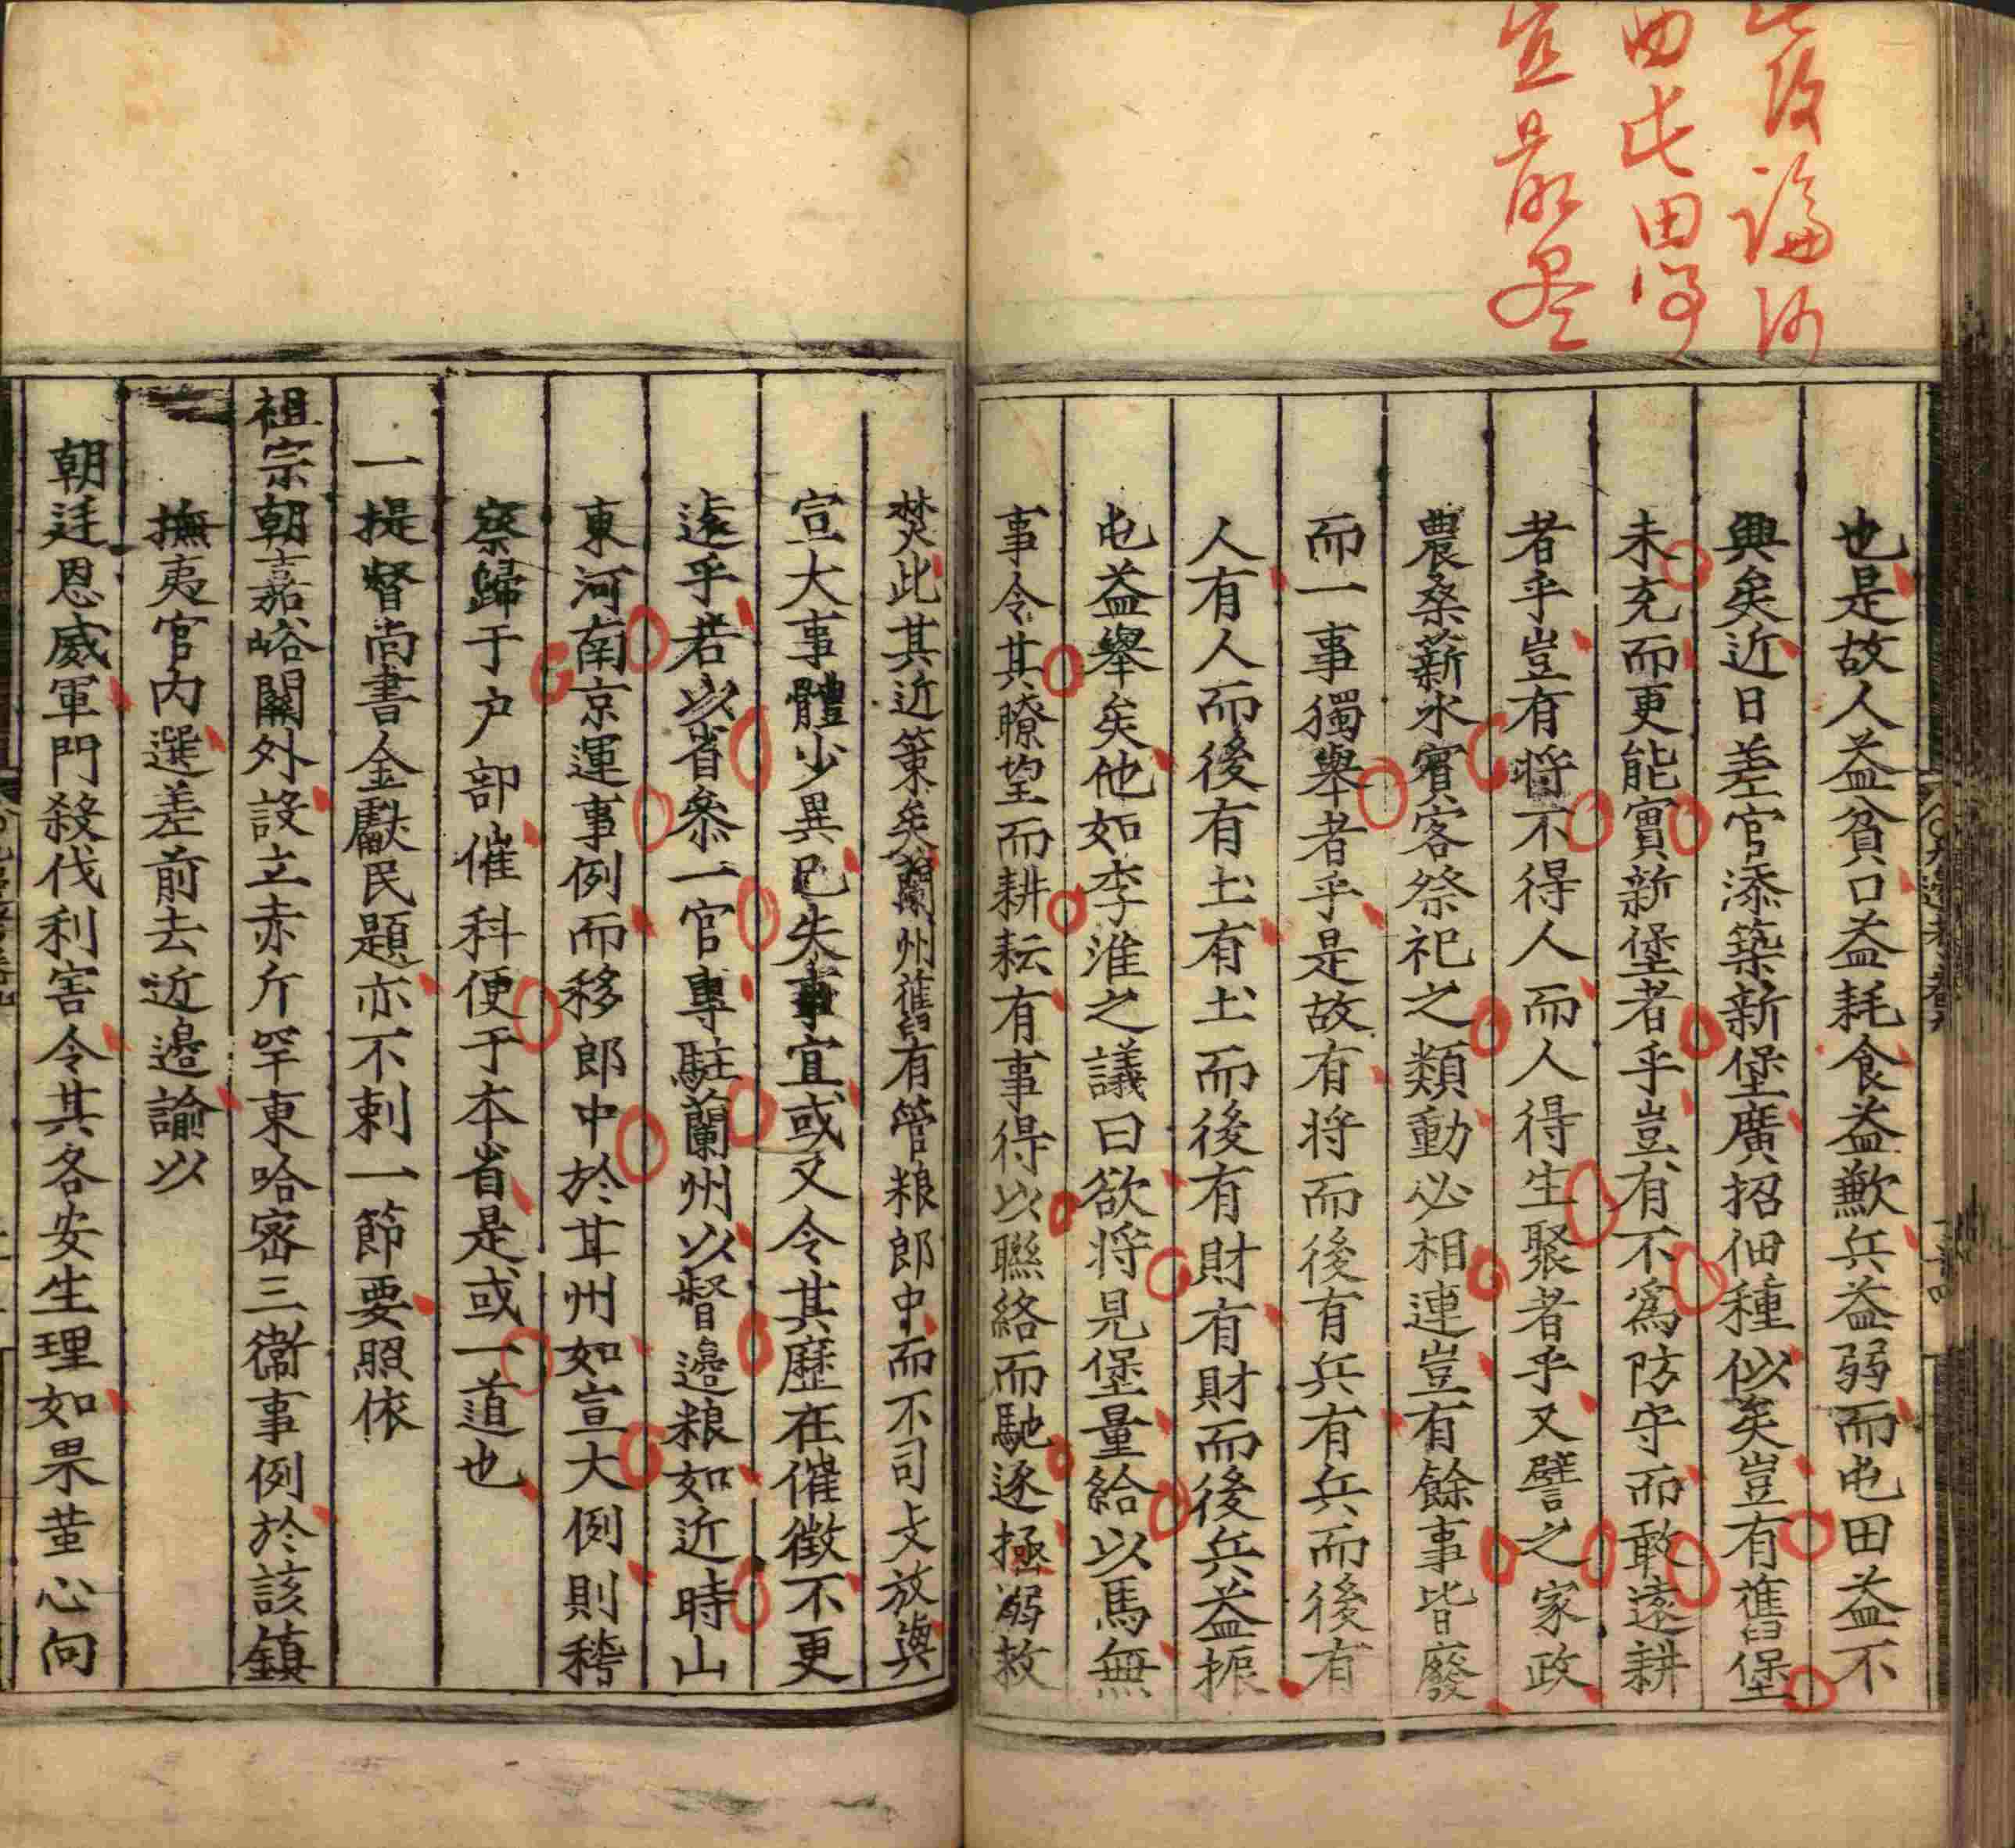 段論河
田屯田得
宜最盡
也是故人益貧口益耗食益歉兵益弱而屯田益不
興矣近日差官添築新堡廣招佃種似矣豈有舊堡
未充而更能實新堡者乎豈有不爲防守而敢遠耕
者乎豈有將不得人而人得生聚者乎又譬之家政
農桑薪水賓客祭祀之類動必相連豈有餘事皆廢
而一事獨舉者乎是故有將而後有兵有兵而後有
人有人而後有土有土而後有財有財而後兵益振
屯益舉矣他如李淮之議曰欲將見堡量給以馬無
事令其瞭望而耕耘有事得以聯絡而馳逐拯溺救
焚此其近策矣蘭州舊有管粮郎中而不司支放與
宣大事體少異已失事宜或又令其歷在催徵不更
遠乎若以省叅一官專駐蘭州以督邉粮如近時山
東河南京運事例而移郎中於甘州如宣大例則稽
察歸于户部催科便于本省是或一道也
一提督尚書金獻民題亦不剌一節要照依
祖宗朝嘉峪關外設立赤斤罕東哈宻三衞事例於該鎮
撫夷官內選差前去近邉諭以
朝廷恩威軍門殺伐利害令其各安生理如果革心向